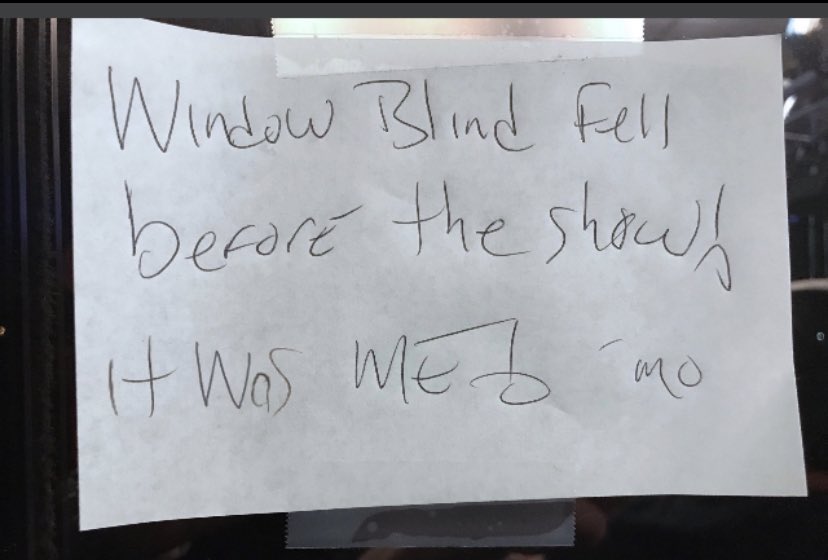 Window Blind Fell
before the show!
It Was ME! -mo